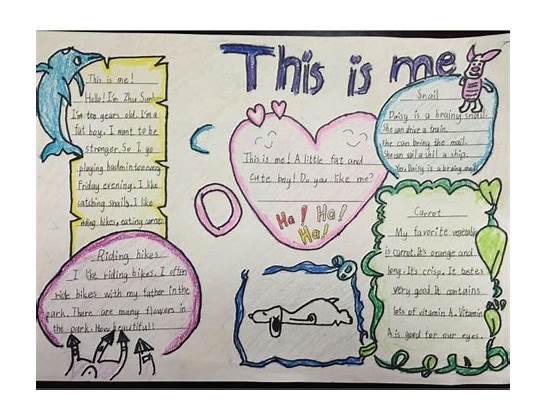 This is me
This is me!
Hello! I'm Zhu
I'm ten years old. I'm a
fat boy. I want to be
stronger. So I go
playing badminton every
Friday evening. I like
catching snails. I like
riding bikes, eating
Riding bikes
I like riding bikes. I often
ride bikes with my father in the
park. There are many flowers in
the park. How beautiful!
This is me! A little fat and
cute boy! Do you like me?
Ha! Ha!
Ha!
Snail
Daisy is a brainy snail.
She can drive a train.
She can bring the mail.
She can sail a ship.
Daisy is a brainy snail
Carrot
My favorite vegetable
is carrot. It's orange and
long. It's crisp. It tastes
very good. It contains
lots of vitamin A. Vitamin
A is good for our eyes.